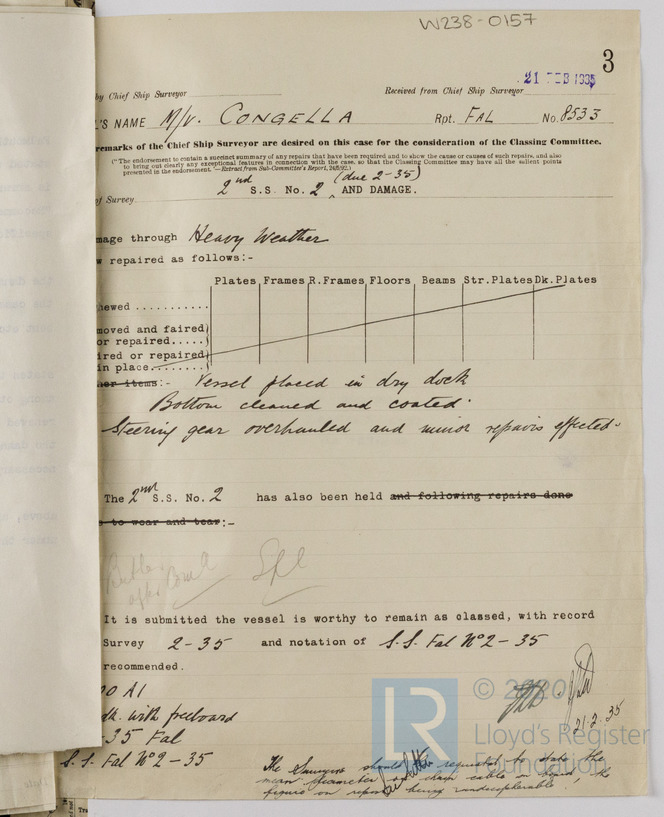 W238-0157
3
by Chief Ship Surveyor
Received from Chief Ship Surveyor
21 FEB 1935
L'S NAME M/V. CONGELLA Rpt. FAL No. 8533
remarks of the Chief Ship Surveyor are desired on this case for the consideration of the Classing Committee.
(* The endorsement to contain a succinct summary of any repairs that have been required and to show the cause or causes of such repairs, and also
to bring out clearly any exceptional features in connection with the case, so that the Classing Committee may have all the salient points
presented in the endorsement."—Extract from Sub-Committee's Report,
(due 2-35)
of Survey 2nd S.S. No. 2 ^ AND DAMAGE.
mage through Heavy Weather
w repaired as follows:-
Plates Frames R.Frames Floors Beams Str.Plates Dk.Plates
newed ...........
moved and faired)
or repaired.....)
ired or repaired)
in place.........)
er items:- Vessel placed in dry dock
Bottom cleaned and coated.
Steering gear overhauled and minor repairs effected.
The 2nd S.S. No. 2 has also been held and following repairs done
s to wear and tear:-
It is submitted the vessel is worthy to remain as classed, with record
Survey 2-35 and notation of S.S. Fal No 2-35
recommended.
00 A1
dk. with freeboard
-35 Fal
S.S. Fal No 2-35
21-2-35
LR
© 2020
Lloyd's Register
Foundation
The Surveyors should be requested to state the
mean diameter of chain cable in the
figure on report being undecipherable.